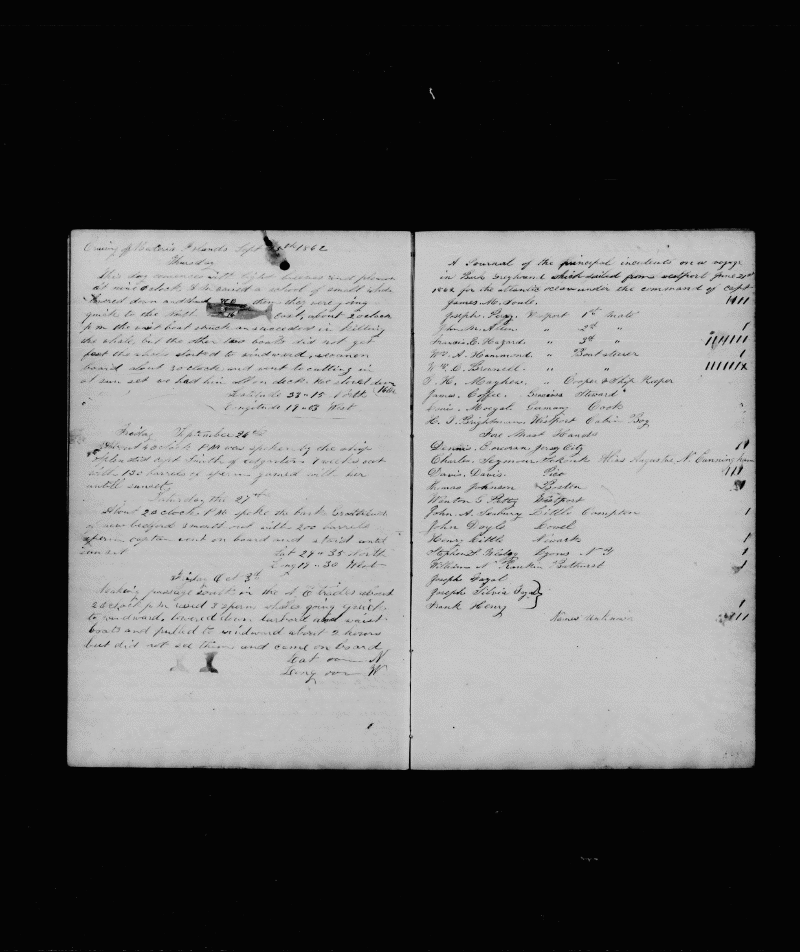 Cruising off Western Islands Sept 25th 1862
Thursday
This day comences with light breezes and pleasant
at nine O clock A M raised a school of small whales
lowered down and they were going
quick to the South East, about 2 oclock
P M the waist boat struck an succeeded in killing
the whale, but the other two boats did not get
fast the whales started to windward, we came on
board about 3 oclock and went to cutting in
at sun set we had him all on deck. We stowed down
Latitude 33 - 15 North
Longitude 19 - 03 West
Friday September 26th
About 2 oclock P M was spoken by the ship
Splendid Capt Smith of Edgartown 1 week out
with 130 barrels of sperm gamed with her
untill sunset
Saturday the 27th
About 2 oclock, P M spoke the bark
of new bedford 3 month out with 200 barrels
sperm captain went on board and staid until
sun set Lat 29 - 35 North
Long 19 - 30 West
Friday Oct 3d
Makeing passage South in the N E trades about
2 oclock P M raised 3 sperm whales going quick
to windward, lowered down larbord and waist
boats and pulled to windward about 2 hours
but did not see them and came on board
Lat N
Long W
A Journal of the principal incidents on a voyage
in Bark Greyhound which sailed from westport June 21st
1862 for the atlantic ocean under the command of Capt
James M. Soule.
Joseph Perry Wesport 1st Mate
John W. Allen " 2d "
Francis E. Hazard " 3d "
Wm A. Hammond " Boat steerer
Wm C. Brownell " "
T. H. Maghers " Cooper & Ship Keeper
James Coffee Steward
Louis Morgat Germany Cook
H. S. Brightman Westport Cabin Boy
Fore Mast Hands
Dennis Jersey City
Charles Seymour Alias Augustus N. Cunningham
Davis Davis Pico
Johnson Boston
Winton G. Petty Westport
John A. Seabury Little Compton
John Doyle Lowel
Henry Little Newark
Stephen Lyons N Y
William N. Rankin Bathurst
Joseph
Joseph Silvia
Frank Henry
Names Unknown